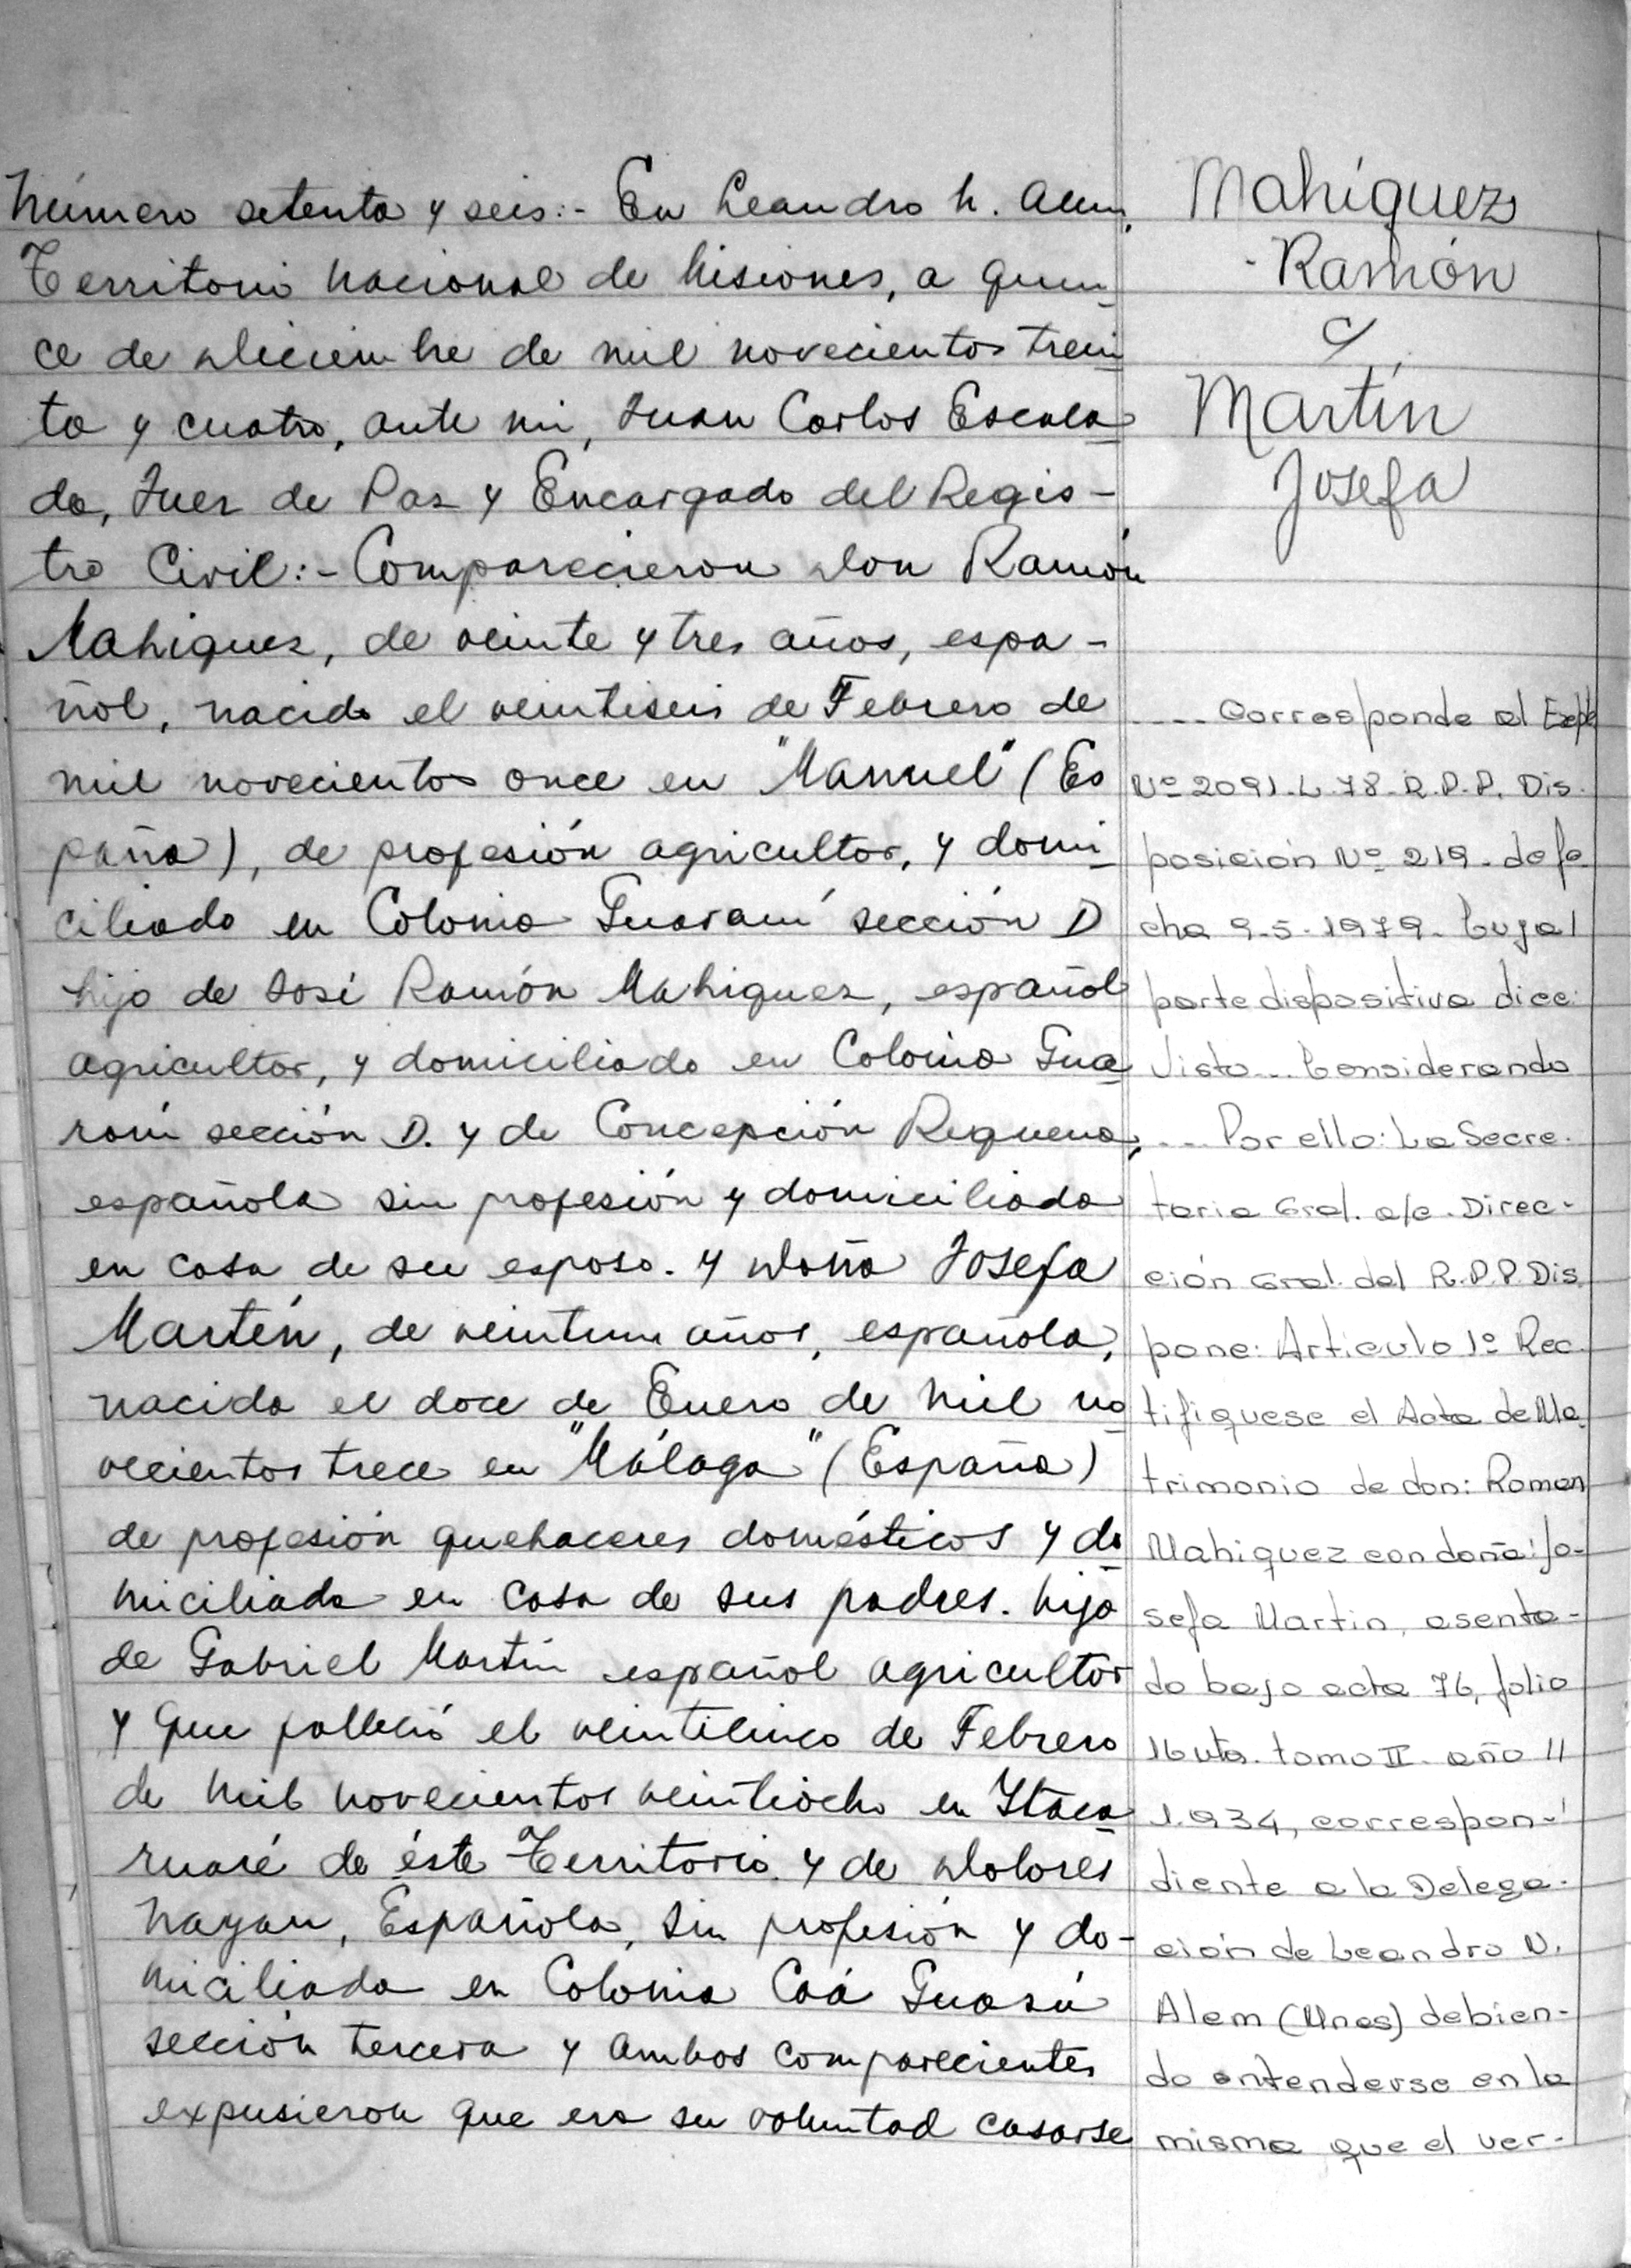 Número setenta y seis:- En Leandro N. Alem,
Territorio Nacional de Misiones, a quin-
ce de Diciembre de mil novecientos trein
ta y cuatro, ante mi, Juan Carlos Escala
da, Juez de Paz y Encargado del Regis-
tro Civil:- Comparecieron Don Ramón
Mahiquez, de veinte y tres años, espa-
ñol, nacido el veintiseis de Febrero de
mil novecientos once en "Manuel" (Es
paña), de profesión agricultor, y domi-
ciliado en Colonia Guaraní sección D
hijo de José Ramón Mahiquez, español
agricultor, y domiciliado en Colonia Gua
raní sección D. y de Concepción Requena,
española sin profesión y domiciliada
en casa de su esposo. y Doña Josefa
Martín, de veintiun años, española,
nacida el doce de Enero de mil no
vecientos trece en "Málaga" (España)
de profesión quehaceres domésticos y do
miciliada en casa de sus padres. hija
de Gabriel Martín español agricultor
y que falleció el veinticinco de Febrero
de mil novecientos veintiocho en Itaca
ruaré de éste Territorio. y de Dolores
Nayan, Española, sin profesión y do-
miciliada en Colonia Caá Guasú
sección tercera y ambos comparecientes
expusieron que era su voluntad casarse
Mahíquez
Ramón
y
Martín
Josefa
.... Corresponde al Expte
Nº 2091-L-78-R.P.P. Dis-
posición Nº 219- de fe-
cha 9-5-1979- Cuya
parte dispositiva dice:
Visto... Considerando
.... Por ello: La Secre-
taria Gral. a/c. Direc-
ción Gral. del R.P.P. Dis
pone: Articulo 1º Rec-
tifiquese el Acta de Ma-
trimonio de don: Ramon
Mahiquez con doña: Jo-
sefa Martin, asenta-
do bajo acta 76, folio
16 vto. tomo II- año
1.934, correspon-
diente a la Delega-
ción de Leandro N.
Alem (Mnes) debien-
do entenderse en la
misma que el ver-